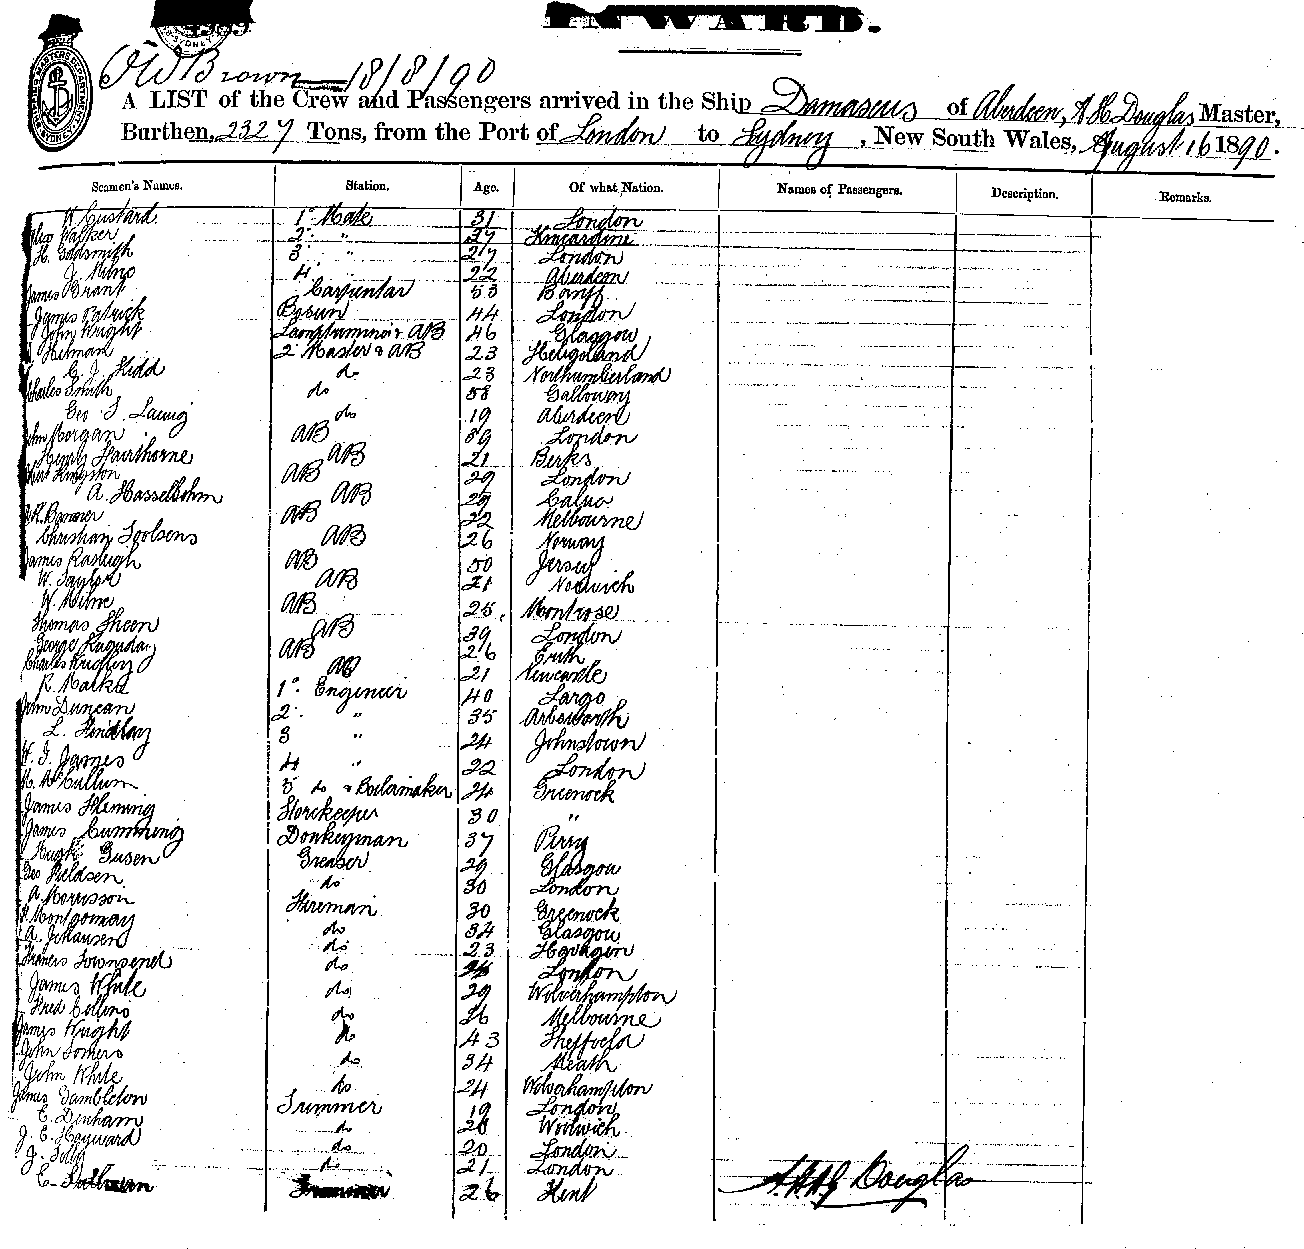 INWARD.
O W Brown 18/8/90
A LIST of the Crew and Passengers arrived in the Ship Damascus of Aberdeen, A H Douglas, Master,
Burthen, 2327 Tons, from the Port of London to Sydney, New South Wales, August 16 1890.
Seamen's Names. Station. Age. Of what Nation. Names of Passengers. Description. Remarks.
W. Custard 1° Mate 31 London
Alex Walker 2. " 27 Kincardine
H. Goldsmith 3 " 27 London
J. Milne 4. 22 Aberdeen
James Grant Carpentar 53 Banff
James Patrick Bosun 44 London
John Wright Lamptrimmer & AB 46 Glasgow
Hilman 2° Master & AB 23 Heligoland
G. J. Kidd do 23 Northumberland
Charles Smith do 58 Galloway
Geo. S. Laing do 19 Aberdeen
John Morgan AB 39 London
Henry Hairthorne AB 21 Berks
Kingston AB 29 London
A. Hasselbohm AB 29 
AB 22 Melbourne
Christian Toolsens AB 26 Norway
James Rasleigh AB 50 Jersey
W. Taylor AB 21 Norwich
W. Milne AB 25 Montrose
Thomas Sheen AB 39 London
George AB 26 Erith
Charles AB 21 Newcastle
R. Markie 1°. Engineer 40 Largo
John Duncan 2. " 35
L. Hindlay 3 " 24 Johnstown
W. J. James 4 " 22 London
A. McCullum 5 do & Boilermaker 24 Greenock
James Fleming Storekeeper 30 "
James Cumming Donkeyman 37 Perry
Hugh Gusen Greaser 29 Glasgow
Geo Fieldsen do 30 London
A. Morrisson Fireman 30 Greenock
Montgomay do 34 Glasgow
A. Johansen do 23 Havagen
Francis Townsend do London
James White do 29 Wolverhampton
Fred Collins do 26 Melbourne
James Knight do 43 Sheffield
John Somers do 34 Meath
John White do 24 Wolverhampton
James Gambleton Trimmer 19 London
E. Denham do 28 Woolwich
J. E. Hayward do 20 London
J. do 21 London
E. Trimmer 26 Kent
A H Douglas